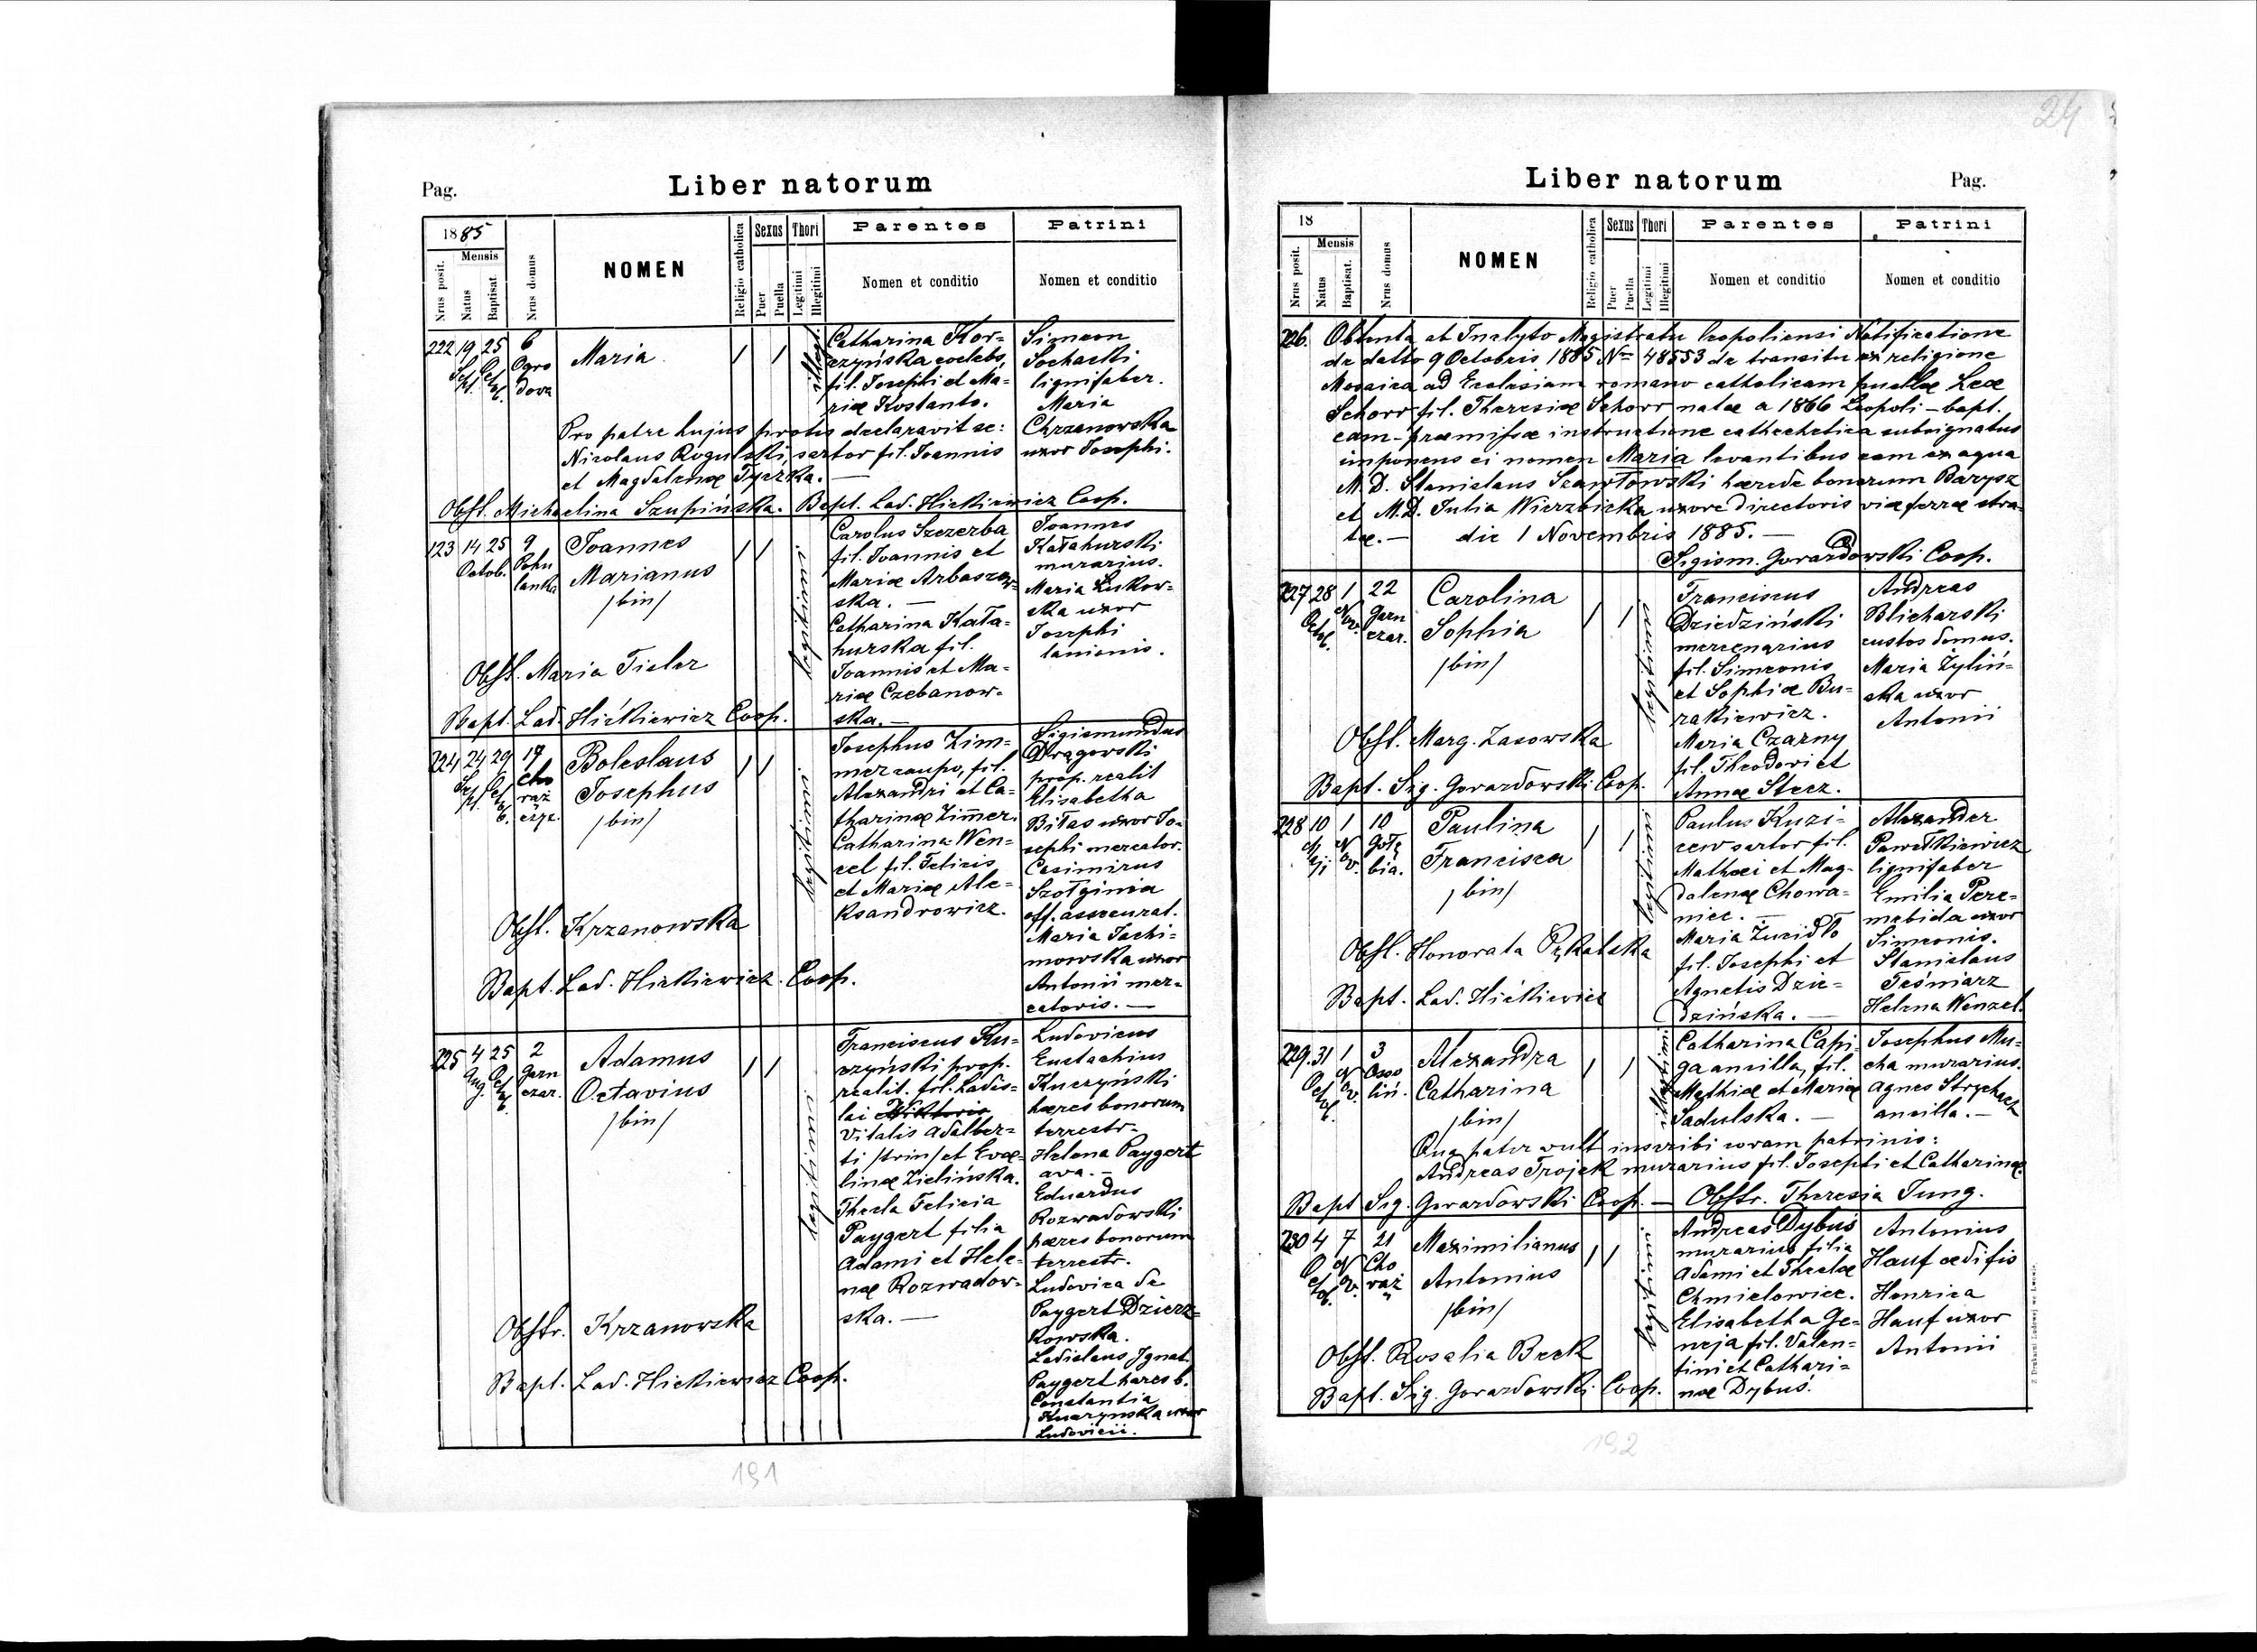 Pag.
Liber natorum
1885
Nrus posit.
Mensis
Natus
Baptisat.
Nrus domus
NOMEN
Religio catholica
Sexus
Puer
Puella
Thori
Legitimi
Illegitimi
Parentes
Nomen et conditio
Patrini
Nomen et conditio
222 19 Sept. 25 Octob. 6 Ogrodova
Maria
illegit.
Catharina Kor=
czyńska coelebs,
fil. Josephi et Ma=
riæ Kostanto.
Simeon
Sochacki
lignifaber.
Maria
Chrzanowska
uxor Josephi.
Pro patre hujus prolis declaravit se:
Nicolaus Rogulski, sartor fil. Joannis
et Magdalenæ Tyczka. —
Obst. Michaelina Szupińska. Bapt. Lad. Hickiewicz Coop.
123 14 25 Octob. 9 Pohulanka
Joannes
Marianus
/bin/
legitimi
Carolus Szczerba
fil. Joannis et
Mariæ Arbaszew=
ska. —
Catharina Kała=
hurska fil.
Joannis et Ma=
riæ Czebanow=
ska. —
Joannes
Kałahurski
murarius.
Maria Lukow=
ska uxor
Josephi
lanionis.
Obst. Maria Tieler
Bapt. Lad. Hićkiewicz Coop.
224 24 Sept. 29 Octob. 17 Chorążczyz.
Boleslaus
Josephus
/bin/
legitimi
Josephus Zim=
mer caupo, fil.
Alexandri et Ca=
tharinæ Zimer.
Catharina Wen=
zel fil. Felicis
et Mariæ Ale=
ksandrowicz.
Sigismundus
Drągowski
prop. realit
Elisabetha
Biłas uxor Jo=
sephi mercator.
Casimirus
Szołginia
off. assecurat.
Maria Jachi=
mowska uxor
Antonii mer=
catoris. —
Obst. Krzanowska
Bapt. Lad. Hickiewicz. Coop.
225 4 Aug. 25 Octob. 2 Garnczar.
Adamus
Octavius
/bin/
legitimi
Franciscus Ku=
czyński prop.
realit. fil. Ladis=
lai
Vitalis Adalber=
ti /trin/ et Eve=
linæ Zielińska.
Thecla Felicia
Paygert filia
Adami et Hele=
næ Rozwadow=
ska. —
Ludovicus
Eustachius
Kuczyński
hæres bonorum
terrestr.
Helena Paygert
ava. —
Eduardus
Rozwadowski
hæres bonorum
terrestr.
Ludovica de
Paygert Dzierz=
kowska.
Ladislaus Ignat.
Paygert hæres b.
Constantia
Kuczynska uxor
Ludovicii.
Obstr. Krzanowska
Bapt. Lad. Hickiewicz Coop.
191
24
Liber natorum
Pag.
18
Nrus posit.
Mensis
Natus
Baptisat.
Nrus domus
NOMEN
Religio catholica
Sexus
Puer
Puella
Thori
Legitimi
Illegitimi
Parentes
Nomen et conditio
Patrini
Nomen et conditio
226. Obtenta at Inclyto Magistratu leopoliensi Notificatione
de datto 9 Octobris 1885 Nro 48553 de transitu ex religione
Mosaica ad Ecclesiam romano cattolicam puellæ Leæ
Schorr fil. Theresiæ Schorr natæ a 1866 Leopoli – bapt.
eam – præmissæ instructione cathechetica subsignatus
imponens ei nomen Maria levantibus eam ex aqua
M. D. Stanislaus Szawłowski hærede bonorum Barysz
et M. D. Julia Wierzbicka uxore directoris viæ ferræ stra=
tæ. — die 1 Novembris 1885. —
Sigism. Gorazdowski Coop.
227 28 Octob. 1 Nov. 22 Garnczar.
Carolina
Sophia
/bin/
legitimi
Franciscus
Dziedziński
mercenarius
fil. Simeonis
et Sophiæ Bu=
rakiewicz.
Maria Czarny
fil. Theodori et
Annæ Stecz.
Andreas
Blicharski
custos domus.
Maria Żyliń=
ska uxor
Antonii
Obst. Marg. Zasowska
Bapt. Sig. Gorazdowski Coop.
228 10 1 Nov. 10 Gołębia.
Paulina
Francisca
/bin/
legitimi
Paulus Kuzi=
cew sartor fil.
Mathæi et Mag=
dalenæ Chowa=
niec. —
Maria Zucidło
fil. Josephi et
Agnetis Dzie=
dzińska. —
Alexander
Pawełkiewicz
lignifaber
Emilia Pere=
mebida uxor
Simeonis.
Stanislaus
Teśniarz
Helena Wenzel.
Obst. Honorata Pękalska
Bapt. Lad. Hićkiewicz
229. 31 Octob. 1 Nov. 3 Ossoliń.
Alexandra
Catharina
/bin/
illegitimi
Catharina Capi=
ga ancilla, fil.
Mathiæ et Mariæ
Sadulska. —
Josephus Mu=
cha murarius.
Agnes Strychacz
ancilla. —
Qua pater vult inscribi coram patrinis:
Andreas Trojek murarius fil. Josephi et Catharinæ
Bapt Sig. Gorazdowski Coop. — Obstr. Theresia Jung.
230 4 Octob. 7 Nov. 21 Chorąż
Maximilianus
Antonius
/bin/
legitimi
Andreas Dybuś
murarius filia
Adami et Theclæ
Chmielowiec.
Elisabetha Ge=
neja fil. Valen=
tini et Cathari=
næ Dybuś.
Antonius
Hauf ædifis
Henrica
Hauf uxor
Antonii
Obst. Rosalia Beck
Bapt. Sig. Gorazdowski Coop.
Z Drukarni Ludowej we Lwowie.
192